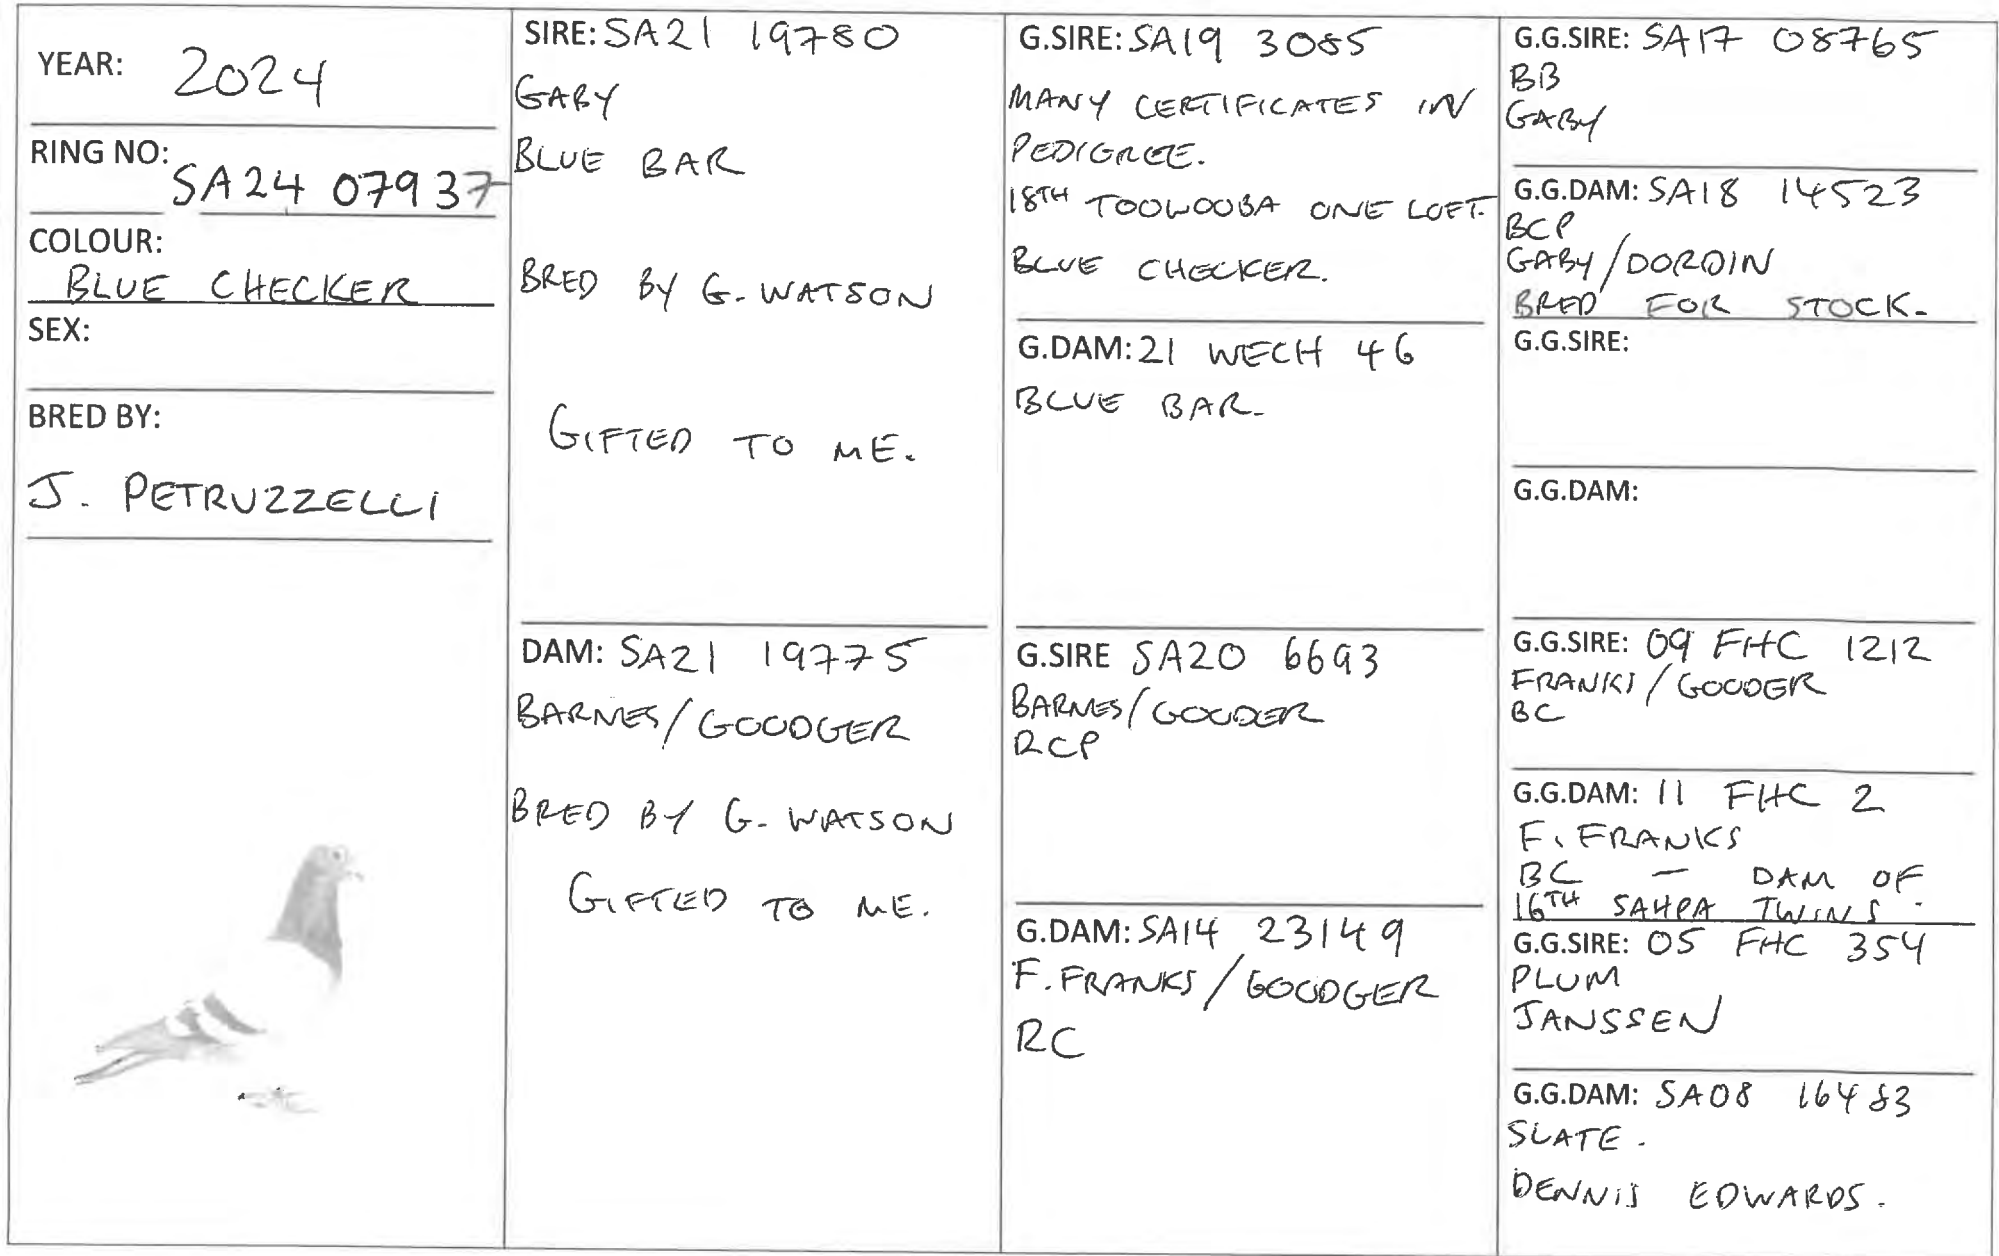 YEAR: 2024
RING NO: SA24 07937
COLOUR:
BLUE CHECKER
SEX:
BRED BY:
J. PETRUZZELLI
SIRE: SA21 19780
GABY
BLUE BAR
BRED BY G. WATSON
GIFTED TO ME.
DAM: SA21 19775
BARNES/GOODGER
BRED BY G. WATSON
GIFTED TO ME.
G.SIRE: SA19 3085
MANY CERTIFICATES IN
PEDIGREE.
18TH TOOWOOBA ONE LOFT.
BLUE CHECKER.
G.DAM: 21 WECH 46
BLUE BAR.
G.SIRE SA20 6693
BARNES/GOODER
RCP
G.DAM: SA14 23149
F. FRANKS/GOODGER
RC
G.G.SIRE: SA17 08765
BB
GABY
G.G.DAM: SA18 14523
BCP
GABY/DORDIN
BRED FOR STOCK.
G.G.SIRE:
G.G.DAM:
G.G.SIRE: 09 FHC 1212
FRANKS/GOODER
BC
G.G.DAM: 11 FHC 2
F. FRANKS
BC - DAM OF
16TH SAHPA TWINS.
G.G.SIRE: 05 FHC 354
PLUM
JANSSEN
G.G.DAM: SA08 16483
SLATE.
DENNIS EDWARDS.